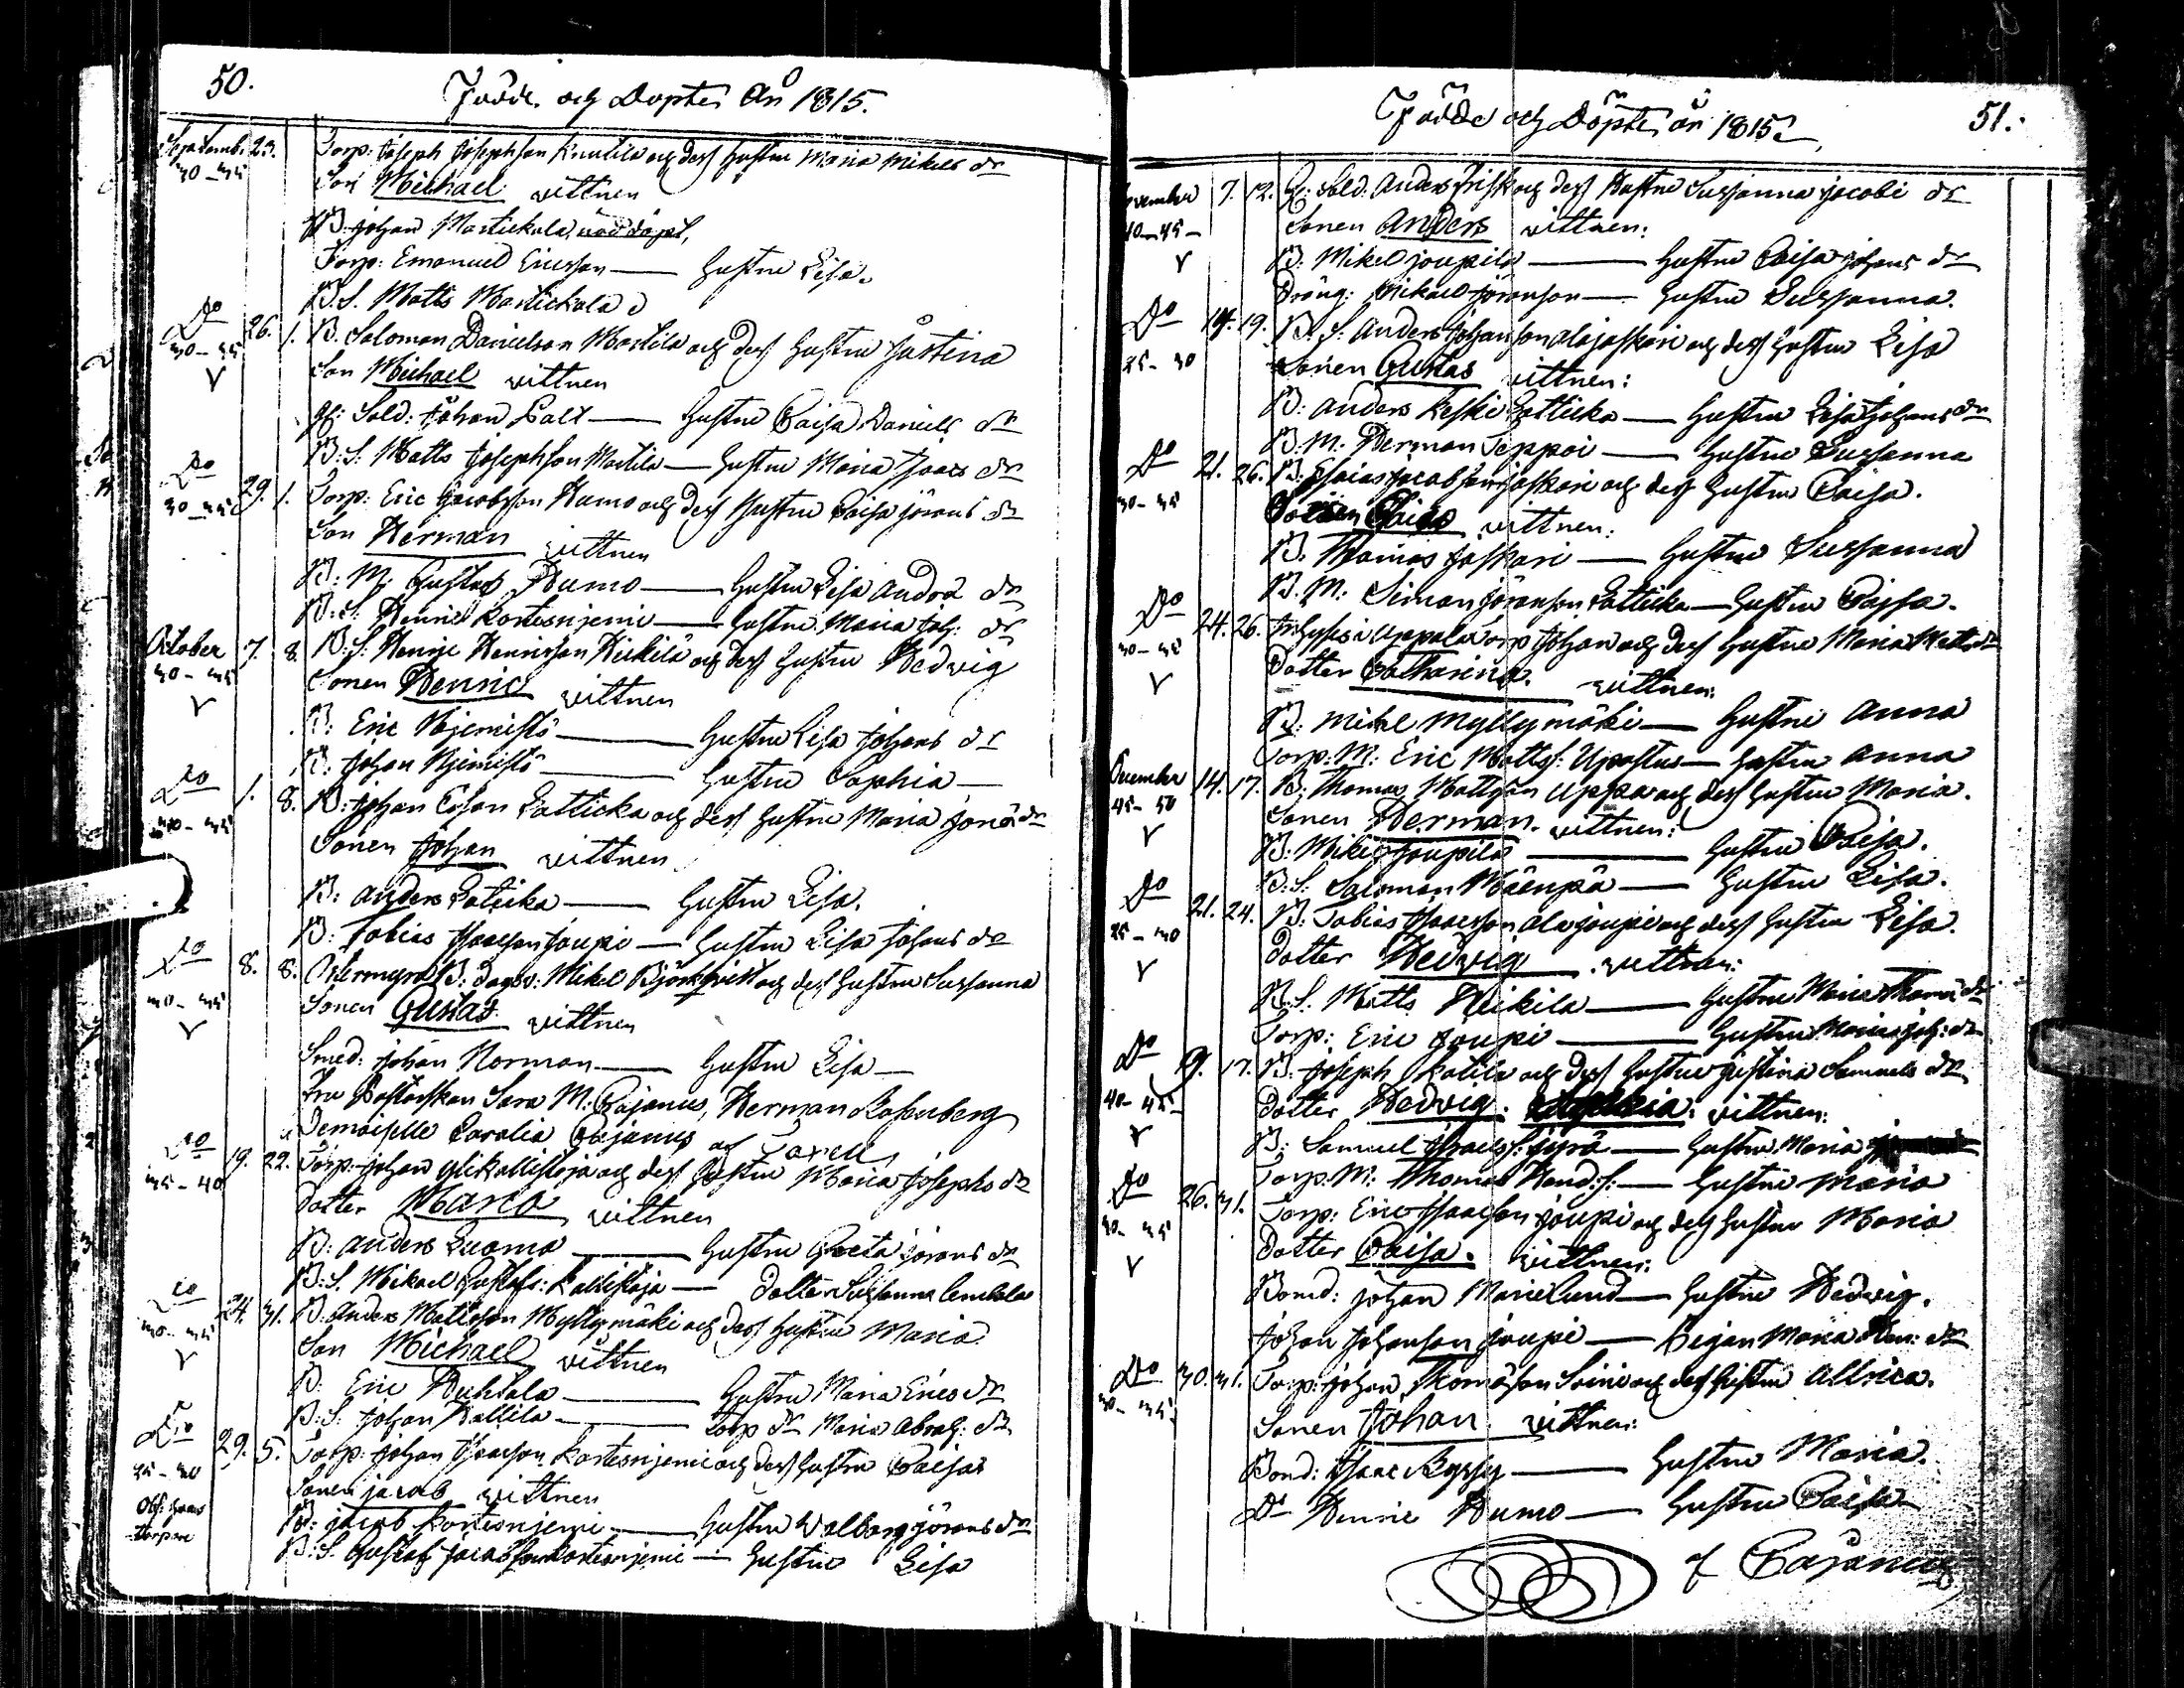 50.
Födde och Döpte År 1815.
Septemb. 23. Torp: Joseph Josephson Knutila och dess Hustru Maria Mikels dr
30-35 Son Michael vittnen
B: Johan Martickala, nöddöpt,
Torp: Emanuel Ericsson — Hustru Lisa.
B.S. Matts Martickala
Do 26. 1. B. Salomon Danielson Martila och dess Hustru Justina
30-35 Son Michael vittnen
gf: Sold: Johan Palt — Hustru Caisa Daniels dr
B:S: Matts Josephson Martila — Hustru Maria Isaacs dr
Do 29. 1. Torp: Eric Jacobsson Humo och dess Hustru Caisa Jörans dr
30-35 Son Herman vittnen
B: M: Gustaf Humo — Hustru Lisa Andra dr
B:S: Henric Kortesnjemi — Hustru Maria Joh: dr
October 7. 8. B.S. Henric Henricson Heikilä och dess Hustru Hedvig
30-35 Sonen Henric vittnen
B: Eric Njemistö — Hustru Lisa Johans dr
B. Johan Njemistö — Hustru Sophia —
Do 1. 8. B: Johan Esson Latticka och dess Hustru Maria Jonä dr
30-35 Sonen Johan vittnen
B: Anders Laticka — Hustru Lisa.
B: Tobias Isacson Joupi — Hustru Lisa Johans dr
Do 8. 8. Östermyra B: Dagsv: Mikel Björkqvist och dess Hustru Susanna
30-35 Sonen Gustaf vittnen
Smed: Johan Norman — Hustru Lisa —
Fru Pastorskan Sara M. Cajanus, Herman Rosenberg
Demoiselle Carolia Cajanus
Do 19. 22. Torp: Johan Ylikallistoja och dess Hustru Maria Josephs dr
35-40 Dotter Maria vittnen
B: Anders Luoma — Hustru Greta Jörans dr
B:S. Mikael Gustafs: Kallistoja — Dotter Susanna
Do 24. 31. B. Anders Mattsson Myllymäki och dess Hustru Maria
30-35 Son Michael vittnen
B: Eric Ruhtala — Hustru Maria Erics dr
B:S: Johan Kallila — Torp dr Maria Abrah: dr
Do 29. 5. Torp: Johan Isacson Kortesnjemi och dess Hustru Caisa
25-30 Sonen Jacob vittnen
B: Jacob Kortesnjemi — Hustru Walborg Jörans dr
B:S. Gustaf Jacobson Kortesnjemi — Hustru Lisa
Födde och Döpte år 1815
51.
November 7. 12. gf: Sold: Anders Frisk och dess Hustru Susanna Jacobi dr
40-45 Sonen Anders vittnen:
B: Mikel Joupila — Hustru Caisa Johans dr
Dräng: Mikael Jöranson — Hustru Susanna.
Do 14. 19. B:S: Anders Johanson Alajaskari och dess Hustru Lisa
25-30 Sonen Gustas vittnen:
B: Anders Keski Latticka — Hustru Lisa Johans dr
B:M: Herman Seppoi — Hustru Susanna
Do 21. 26. B: Esaias Jacobson Jaskari och dess Hustru Caisa.
30-35 vittnen:
B. Thomas Jaskari — Hustru Susanna
B. M. Simon Jöranson Latticka — Hustru Caisa.
Do 24. 26. Inhyses i Uppala Torp Johan och dess Hustru Maria Matts dr
30-35 Dotter Catharina. vittnen:
B: Mikel Myllymäki — Hustru Anna
Torp: M: Eric Mattss: — Hustru Anna
December 14. 17. B: Thomas Mattson Uppa och dess Hustru Maria.
45-50 Sonen Herman. vittnen:
B: Mikel Joupila — Hustru Caisa.
B:S: Salomon Mäenpä — Hustru Lisa.
Do 21. 24. B: Tobias Isacsson Alajoupi och dess Hustru Lisa.
25-30 Dotter Hedvig vittnen:
B.S. Matts Heikila — Hustru Maria Thomä dr
Torp: Eric Joupi — Hustru Maria Joh: dr
Do 9. 17. B. Joseph Katila och dess Hustru Justina Samuels dr
40-45 Dotter Hedvig. vittnen:
B: Samuel Israelss: Jyrä — Hustru Maria
Torp: M: Thomas Hend:s: — Hustru Maria
Do 26. 31. Torp: Eric Isacson Joupi och dess Hustru Maria
30-35 Dotter Caisa. vittnen:
Bond: Johan Marielund — Hustru Hedvig.
Johan Johanson Joupi — Pigan Maria dr
Do 30. 31. Torp: Johan Thomäson Soini och dess Hustru Allrica.
30-35 Sonen Johan vittnen:
Bond: Isaac Ryssy — Hustru Maria.
Do Henric Humo — Hustru Caisa
Cajanus